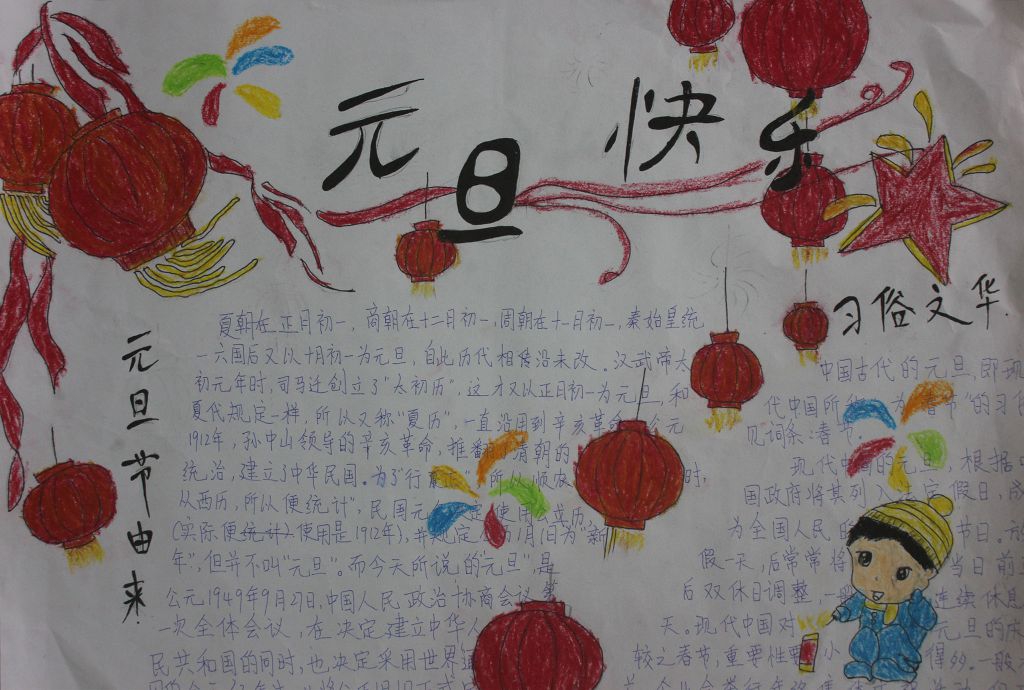 元旦快乐
元旦节由来
夏朝在正月初一，商朝在十二月初一，周朝在十一月初一，秦始皇统
一六国后又以十月初一为元旦，自此历代相传沿未改。汉武帝太
初元年时，司马迁创立了“太初历”，这才又以正月初一为元旦，和
夏代规定一样，所以又称“夏历”，一直沿用到辛亥革命 公元
1912年，孙中山领导的辛亥革命，推翻了清朝的
统治，建立了中华民国。为了“行夏正 所以顺农 时，
从西历，所以便统计”，民国元 使用公历
（实际使用是1912年），并规定公历1月1日为“新
年”，但并不叫“元旦”。而今天所说的“元旦”，是
公元1949年9月27日，中国人民政治协商会议第
一次全体会议，在决定建立中华人
民共和国的同时，也决定采用世界通
习俗文华
中国古代的元旦，即现
代中国所 为“春节”的习俗
见词条：春节。
现代中国的元旦，根据中
国政府将其列入 定假日，成
为全国人民的 节日。放
假一天，后常常将 当日前
后双休日调整，一般 连续休息
天。现代中国对 元旦的庆
较之春节，重要性要小 得多。一般